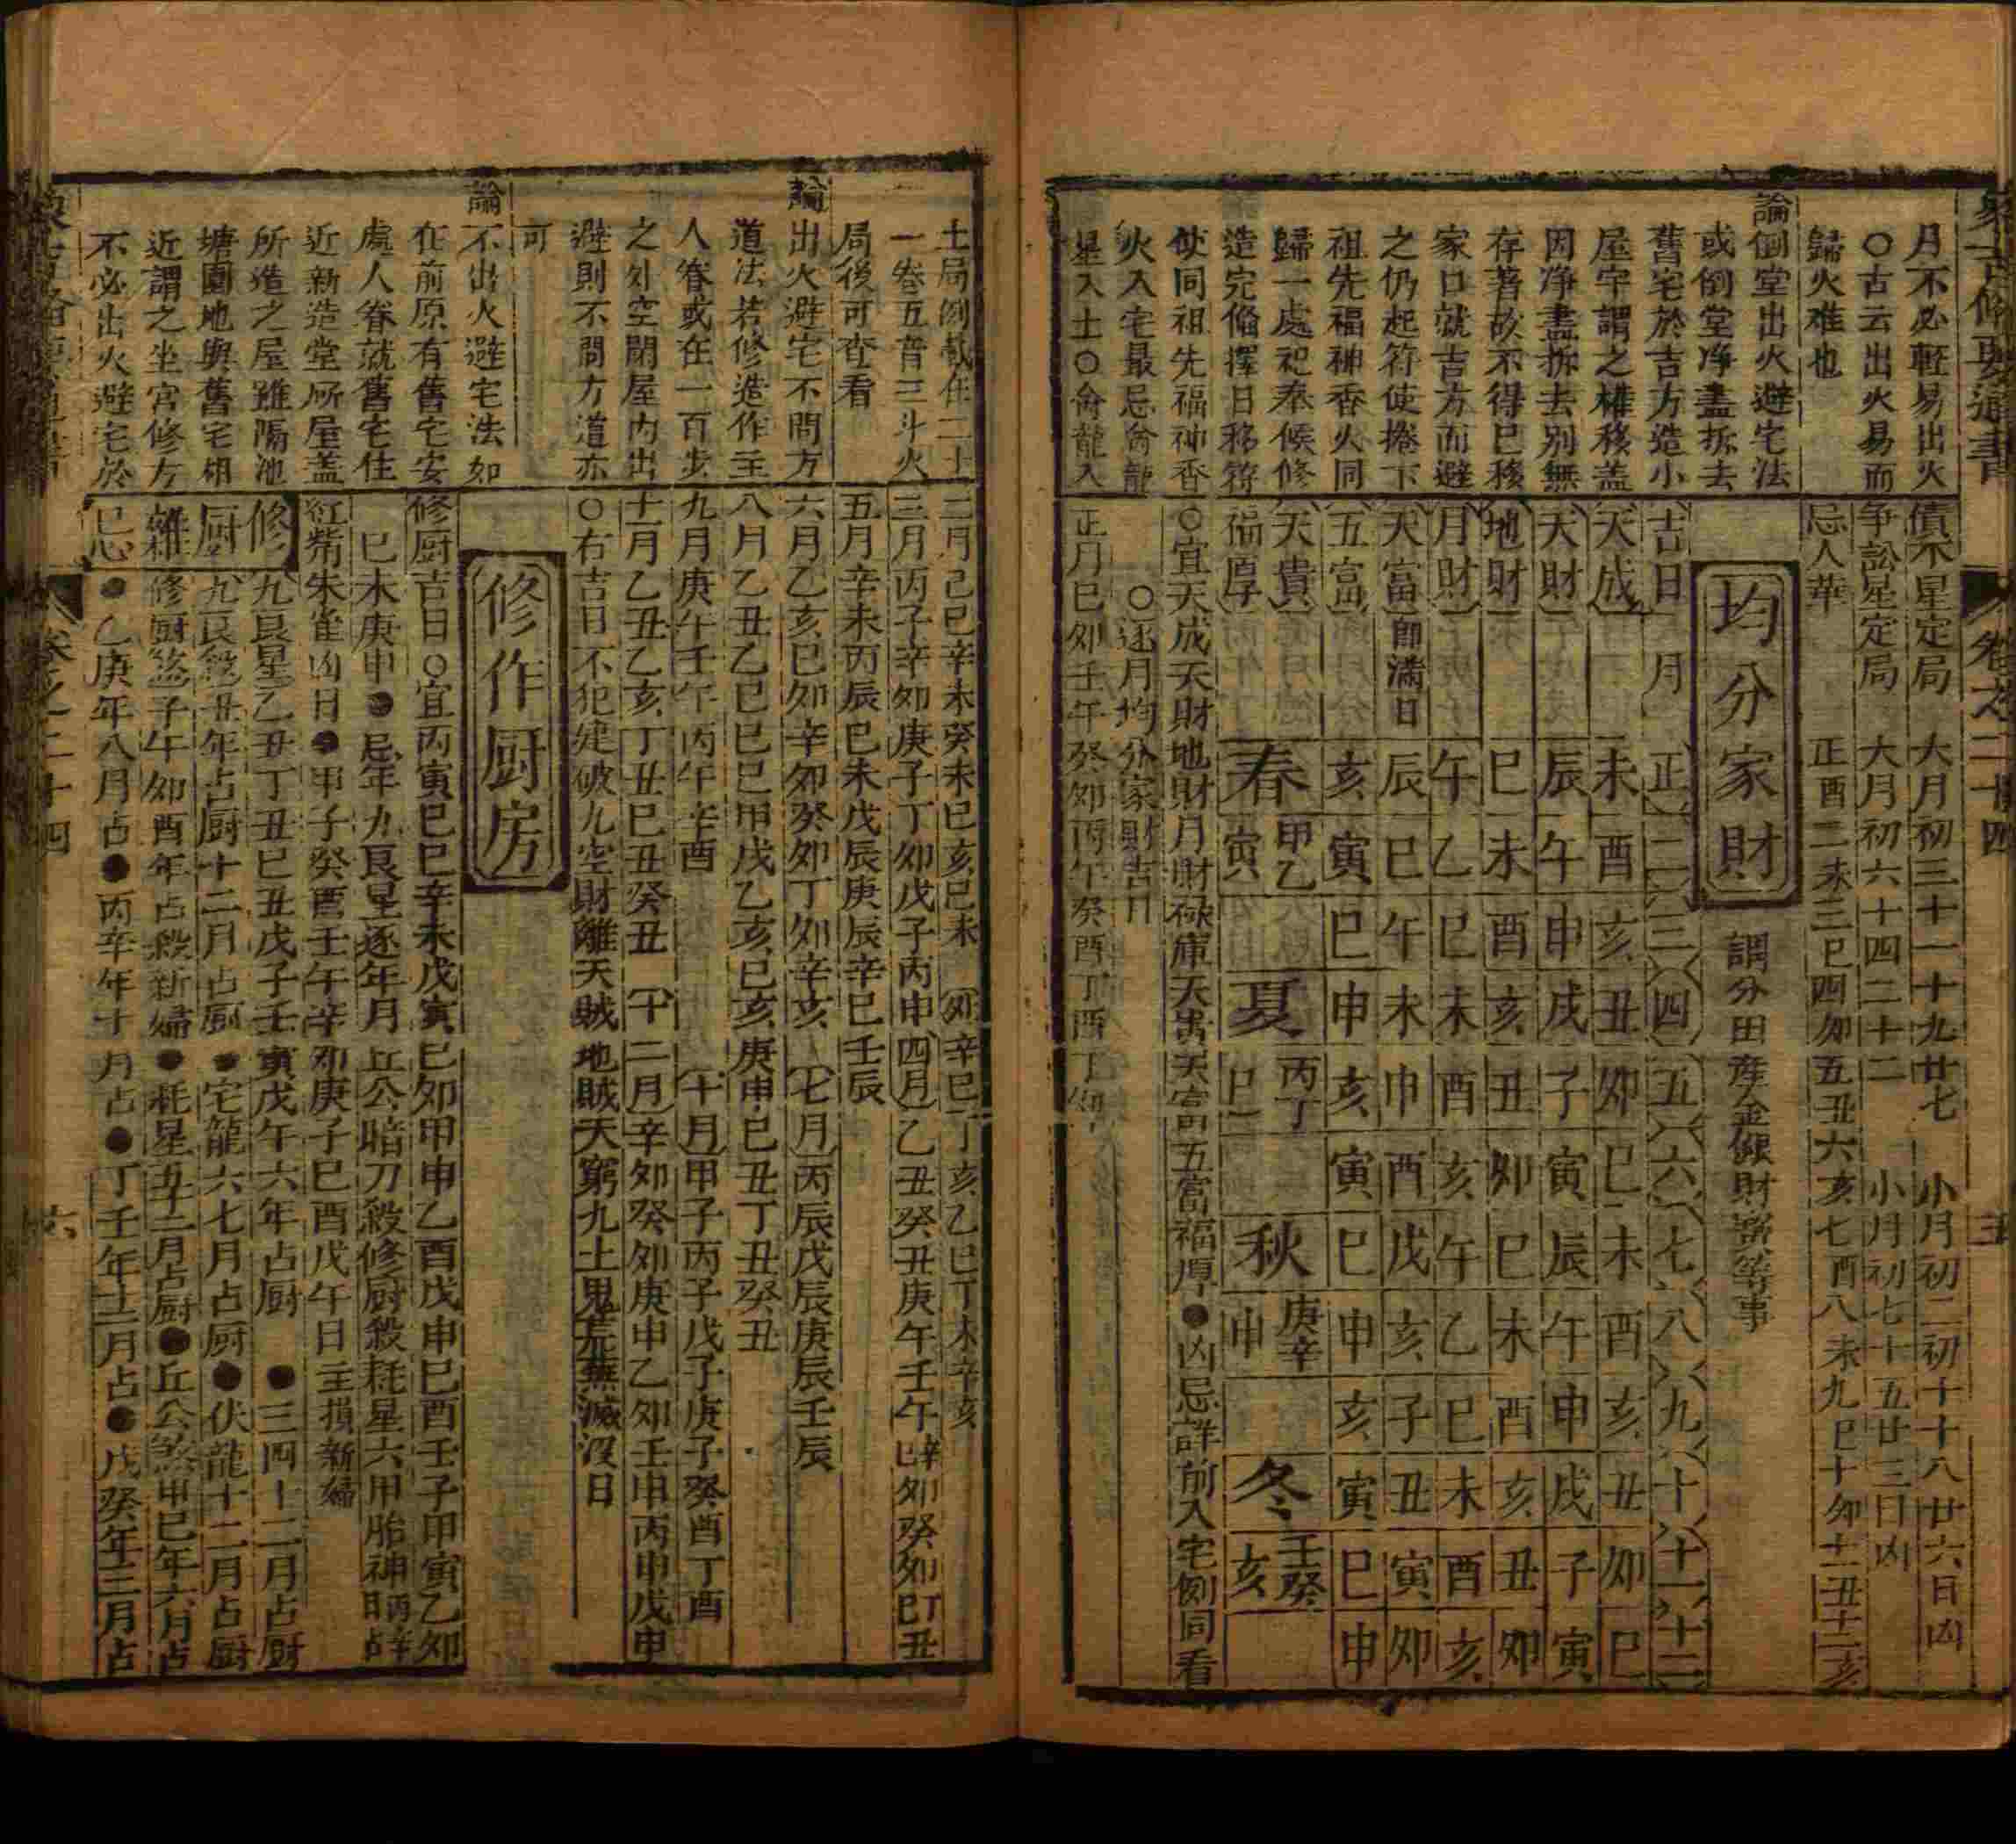 象吉備要通書
卷之二十四
月不必輕易出火
○古云出火易而
歸火难也
論倒堂出火避宅法
或倒堂净盡拆去
舊宅於吉方造小
屋宇謂之權移盖
因净盡拆去别無
存著故不得已移
家口就吉方而避
之仍起符使捲下
祖先福神香火同
歸一處祀奉候修
造完偹擇日移符
使同祖先福神香
火入宅最忌
星入土○
債不星定局 大月初三十一十九廿七 小月初二初十十八廿六日凶
争訟星定局 大月初六十四二十二 小月初七十五廿三日凶
忌人華 正酉二未三巳四夘五丑六亥七酉八未九巳十夘十一丑十二亥
均分家財
謂分田産金銀財寳等事
吉日 月 正 二 三 四 五 六 七 八 九 十 十一 十二
天成 未 酉 亥 丑 夘 巳 未 酉 亥 丑 夘 巳
天財 辰 午 申 戌 子 寅 辰 午 申 戌 子 寅
地財 巳 未 酉 亥 丑 夘 巳 未 酉 亥 丑 夘
月財 午 乙 巳 未 酉 亥 午 乙 巳 未 酉 亥
天富 即滿日 辰 巳 午 未 申 酉 戌 亥 子 丑 寅 夘
五富 亥 寅 巳 申 亥 寅 巳 申 亥 寅 巳 申
天貴 福厚 春 甲乙 寅 夏 丙丁 巳 秋 庚辛 申 冬 壬癸 亥
○宜天成天財地財月財禄庫天貴天富五富福厚●凶忌詳前入宅例同看
○逐月均分家財吉日
正月巳夘壬午癸夘丙午癸酉丁酉丁夘
土局例載在二十
一卷五音三斗火
局後可查看
論出火避宅不問方
道法若修造作主
人眷或在一百步
之外空閒屋内出
避則不問方道亦
可
論不出火避宅法如
在前原有舊宅安
處人眷就舊宅住
近新造堂所屋盖
所造之屋雖隔池
塘園地與舊宅相
近謂之坐宮修方
不必出火避宅於
二月己巳辛未癸未巳亥巳未 夘辛巳丁亥乙巳丁未辛亥
三月丙子辛夘庚子丁夘戊子丙申 四月乙丑癸丑庚午壬午辛夘癸夘丁丑
五月辛未丙辰巳未戊辰庚辰辛巳壬辰
六月乙亥巳夘辛夘癸夘丁夘辛亥 七月丙辰戊辰庚辰壬辰
八月乙丑乙巳巳巳甲戌乙亥巳亥庚申巳丑丁丑癸丑
九月庚午壬午丙午辛酉 十月甲子丙子戊子庚子癸酉丁酉
十一月乙丑乙亥丁丑巳丑癸丑 十二月辛夘癸夘庚申乙夘壬申丙申戊申
○右吉日不犯建破九空財離天賊地賊天窮九土鬼荒蕪滅没日
修作厨房
修厨吉日○宜丙寅巳巳辛未戊寅巳夘甲申乙酉戊申巳酉壬子甲寅乙夘
巳未庚申●忌年九艮星逐年月丘公暗刀殺修厨殺耗星六甲胎神
紅觜朱雀凶日●甲子癸酉壬午辛夘庚子巳酉戊午日主損新婦
修厨雜巳心
九艮星乙丑丁丑巳丑戊子壬寅戊午六年占厨 ●三四十二月占厨
九艮殺丑年占厨十二月占厨●宅龍六七月占厨●伏龍十二月占厨
修厨煞子午夘酉年占殺新婦●耗星五十二月占厨●丘公煞甲巳年六月占
●乙庚年八月占●丙辛年十月占●丁壬年十二月占●戊癸年三月占
卷之二十四
六